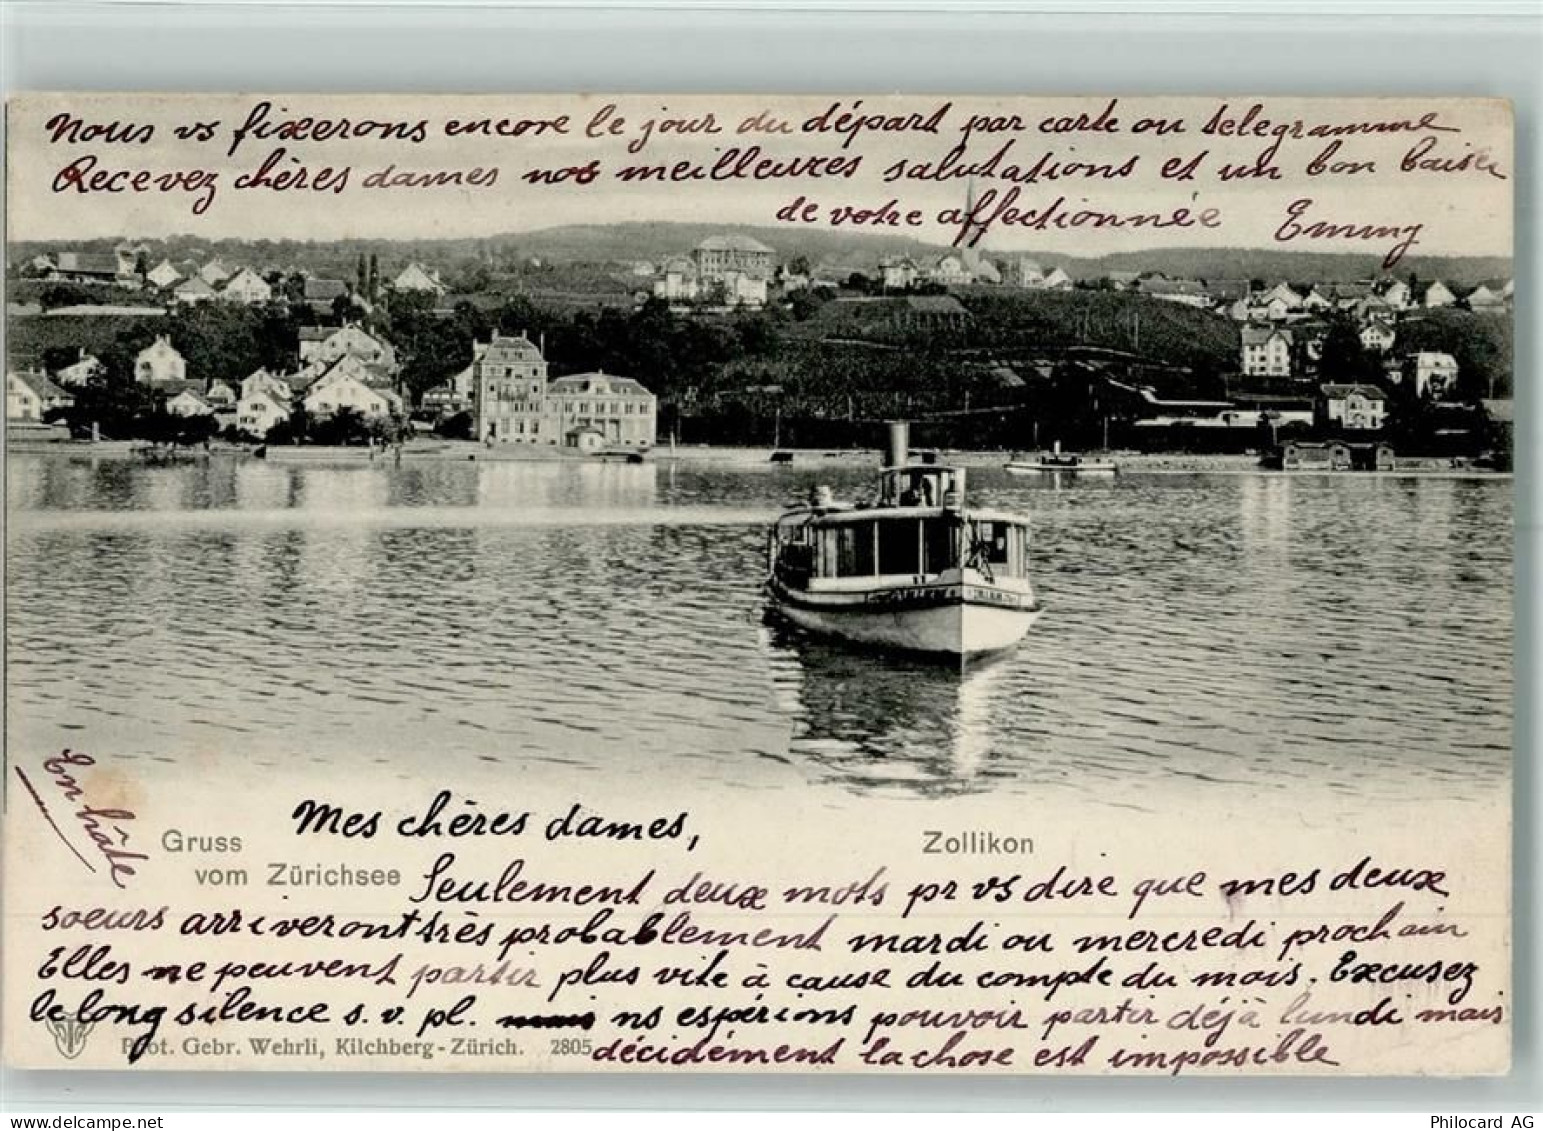 Nous vs fixerons encore le jour du départ par carte ou telegramme
Recevez chères dames nos meilleures salutations et un bon baiser
de votre affectionnée Emmy
En hâte
Mes chères dames,
Gruss
vom Zürichsee
Zollikon
Seulement deux mots pr vs dire que mes deux
soeurs arriveront très probablement mardi ou mercredi prochain
Elles ne peuvent partir plus vite à cause du compte du mois. Excusez
le long silence s. v. pl. mais ns espérions pouvoir partir déjà lundi mais
décidément la chose est impossible
Phot. Gebr. Wehrli, Kilchberg-Zürich. 2805
delcampe.net
Philocard AG